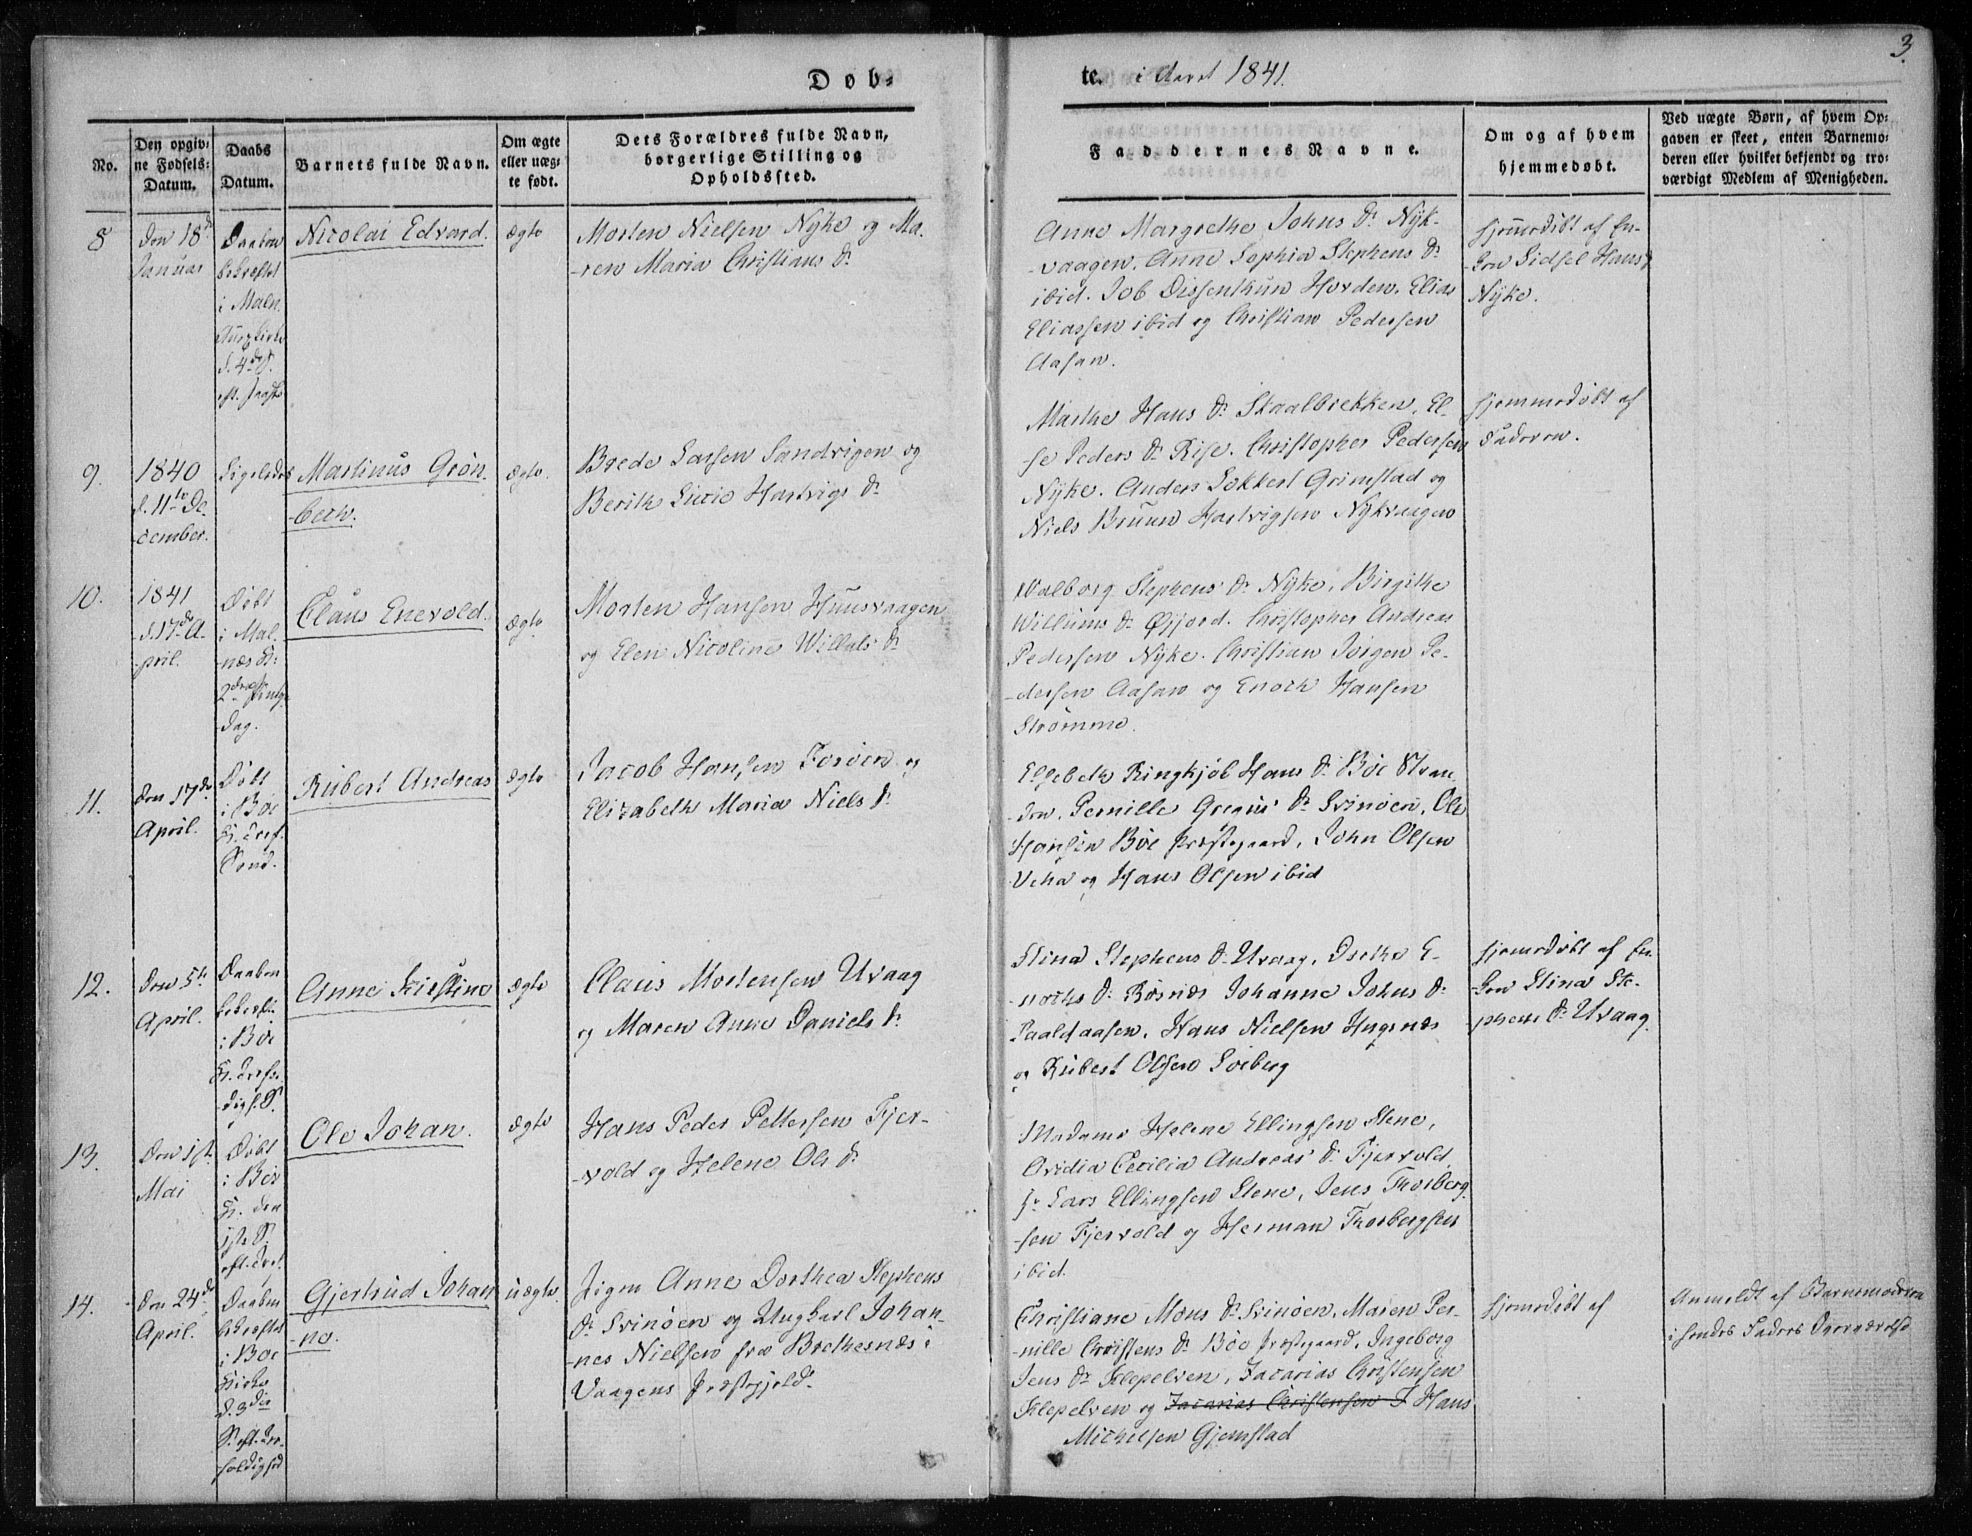 3.
Døb-
te. i Aaret 1841.
No.
Den opgiv-
ne Fødsels-
Datum.
Daabs
Datum.
Barnets fulde Navn.
Om ægte
eller uæg-
te født.
Dets Forældres fulde Navn,
borgerlige Stilling og
Opholdssted.
Faddernes Navne.
Om og af hvem
hjemmedøbt.
Ved uægte Børn, af hvem Op-
gaven er skeet, enten Barnemo-
deren eller hvilket bekjendt og tro-
værdigt Medlem af Menigheden.
8
den 18de
Januar
Daaben
bekræftet
i Maln.
Kirke
d. 4de S.
eft. Paaske
Nicolai Edvard.
ægte
Morten Nielsen Nyke og Ma-
-ren Maria Christians Dr
Anne Margrethe Johns Dr Nyk-
-vaagen. Anne Sophia Stephens Dr
ibid. Job Dissenthun Hovden. Elias
Eliassen ibid og Christian Pedersen
Aasan.
hjemmedøbt af En-
-ken Sidsel Hans Dr
Nyke.
9.
1840
d. 11te De-
cember.
Ligeledes
Martinus Grøn-
-bech.
ægte.
Brede Larsen Sandvigen og
Berith Lucie Hartvigs Dr
Marthe Hans Dr Skaalbrekken, El-
se Peders Dr Rise. Christopher Pedersen
Nyke. Anders Lokkert Grimstad og
Niels Bruun Hartvigsen Nykvaagen
hjemmedøbt af
Faderen.
10.
1841
d. 17de A-
-pril.
Døbt
i Mal-
næs K:
2den Pintse
dag.
Claus Enevold.
ægte
Morten Hansen Huusvaagen
og Elen Nicoline Willads Dr
Walborg Stephens Dr Nyke, Birgithe
Willums Dr Øjjord. Christopher Andreas
Pedersen Nyke. Christian Jørgen Pe-
-dersen Aasan og Enoch Hansen
Strømme.
11.
den 17de
April.
Døbt
i Bøe
K. Tref.
Sønd.
Rubert Andreas
ægte
Jacob Hansen Forøen og
Elizabeth Maria Niels Dr
Elsebeth Ringkjøb Hans Dr Bøe Stran-
den. Pernille Gregus Dr Svinøen, Ole
Hansen Bøe Præstegaard, John Olsen
Veha og Hans Olsen ibid
12.
den 5te
April.
Daaben
bekræft.
i Bøe
K. Trefol-
dighS.
Anne Kristine
ægte
Claus Mortensen Uvaag
og Maren Anne Daniels Dr
Stina Stephens Dr Uvaag, Dorthe E-
-nochs Dr Røsnæs Johanne Johns Dr
Paaldaasen, Hans Nielsen Hugenæs
og Rubert Olsen Søeberg
hjemmedøbt af En-
-ken Stina Ste-
phens Dr Uvaag.
13.
den 1ste
Mai
Døbt
i Bøe
K. den
1ste S.
eft. Tref.
Ole Johan.
ægte
Hans Peder Pettersen Fjer-
-vold og Helene Ols Dr
Madame Helene Ellingsen Stene,
Ovidia Cecilia Andreas Dr Fjervold,
Hr Lars Ellingsen Stene, Jens Thorberg-
-sen Fjervold og Herman Thorbergsen
ibid.
14.
den 24de
April.
Daaben
bekræftet
i Bøe
Kirke
d. 3die
S. eft. Tre-
foldighed
Gjertrud Johan-
-ne.
uægte.
Pigen Anne Dorthea Stephens
Dr Svinøen og Ungkarl Johan-
-nes Nielsen fra Brettesnæs i
Vaagens Præstegjeld.
Christiane Mons Dr Svinøen, Maren Per-
-nille Christens Dr Bøe Præstegaard, Ingeborg
Jens Dr Klepelven, Zacarias Christensen
Klepelven og Zacarias Christensen F Hans
Michelsen Gjemstad
hjemmedøbt af
Anmeldt af Barnemoderen
i hendes Faders Overværelse